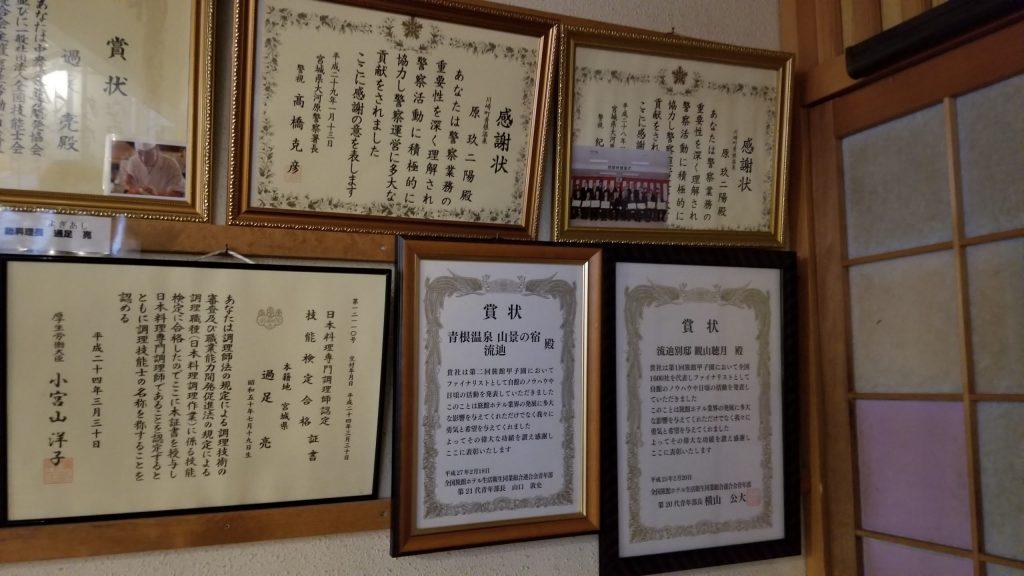 賞状
過足 亮殿
副料理長 過足 亮
感謝状
川崎町青根温泉
原 玖二陽殿
あなたは警察業務の
重要性を深く理解され
警察活動に積極的に
協力し警察運営に多大な
貢献をされました
ここに感謝の意を表します
平成二十九年一月十三日
宮城県大河原警察署長
警視 高橋克彦
感謝状
川崎町青根温泉
原 玖二陽殿
あなたは警察業務の
重要性を深く理解され
警察活動に積極的に
協力し警察運営
貢献をされま
ここに感謝の
平成二十八年
宮城県大河原
警視
第一二一〇号 交付年月日 平成二十四年三月三十日
日本料理専門調理師認定
技能検定合格証書
本籍地 宮城県
過足 亮
昭和五十年七月十九日生
あなたは調理師法の規定による調理技術の
審査及び職業能力開発促進法の規定による
調理職種(日本料理調理作業)に係る技能
検定に合格したのでここに本証書を授与し
日本料理専門調理師であることを認定すると
ともに調理技能士の名称を称することを
認める
平成二十四年三月三十日
厚生労働大臣 小宮山洋子
賞状
青根温泉 山景の宿
流辿 殿
貴社は第二回旅館甲子園において
ファイナリストとして自館のノウハウや
日頃の活動を発表していただきました
このことは旅館ホテル業界の発展に多大
な影響を与えてくれただけでなく我々に
勇気と希望を与えてくれました
よってその偉大な功績を讃え感謝し
ここに表彰いたします
平成27年2月18日
全国旅館ホテル生活衛生同業組合連合会青年部
第21代青年部長 山口 敦史
賞状
流辿別邸 観山聴月 殿
貴社は第1回旅館甲子園において全国
1600社を代表しファイナリストとして
自館のノウハウや日頃の活動を発表し
ていただきました
このことは旅館ホテル業界の発展に多大
な影響を与えてくれただけでなく我々に
勇気と希望を与えてくれました
よってその偉大な功績を讃え感謝し
ここに表彰いたします
平成25年2月20日
全国旅館ホテル生活衛生同業組合連合会青年部
第20代青年部長 横山 公大